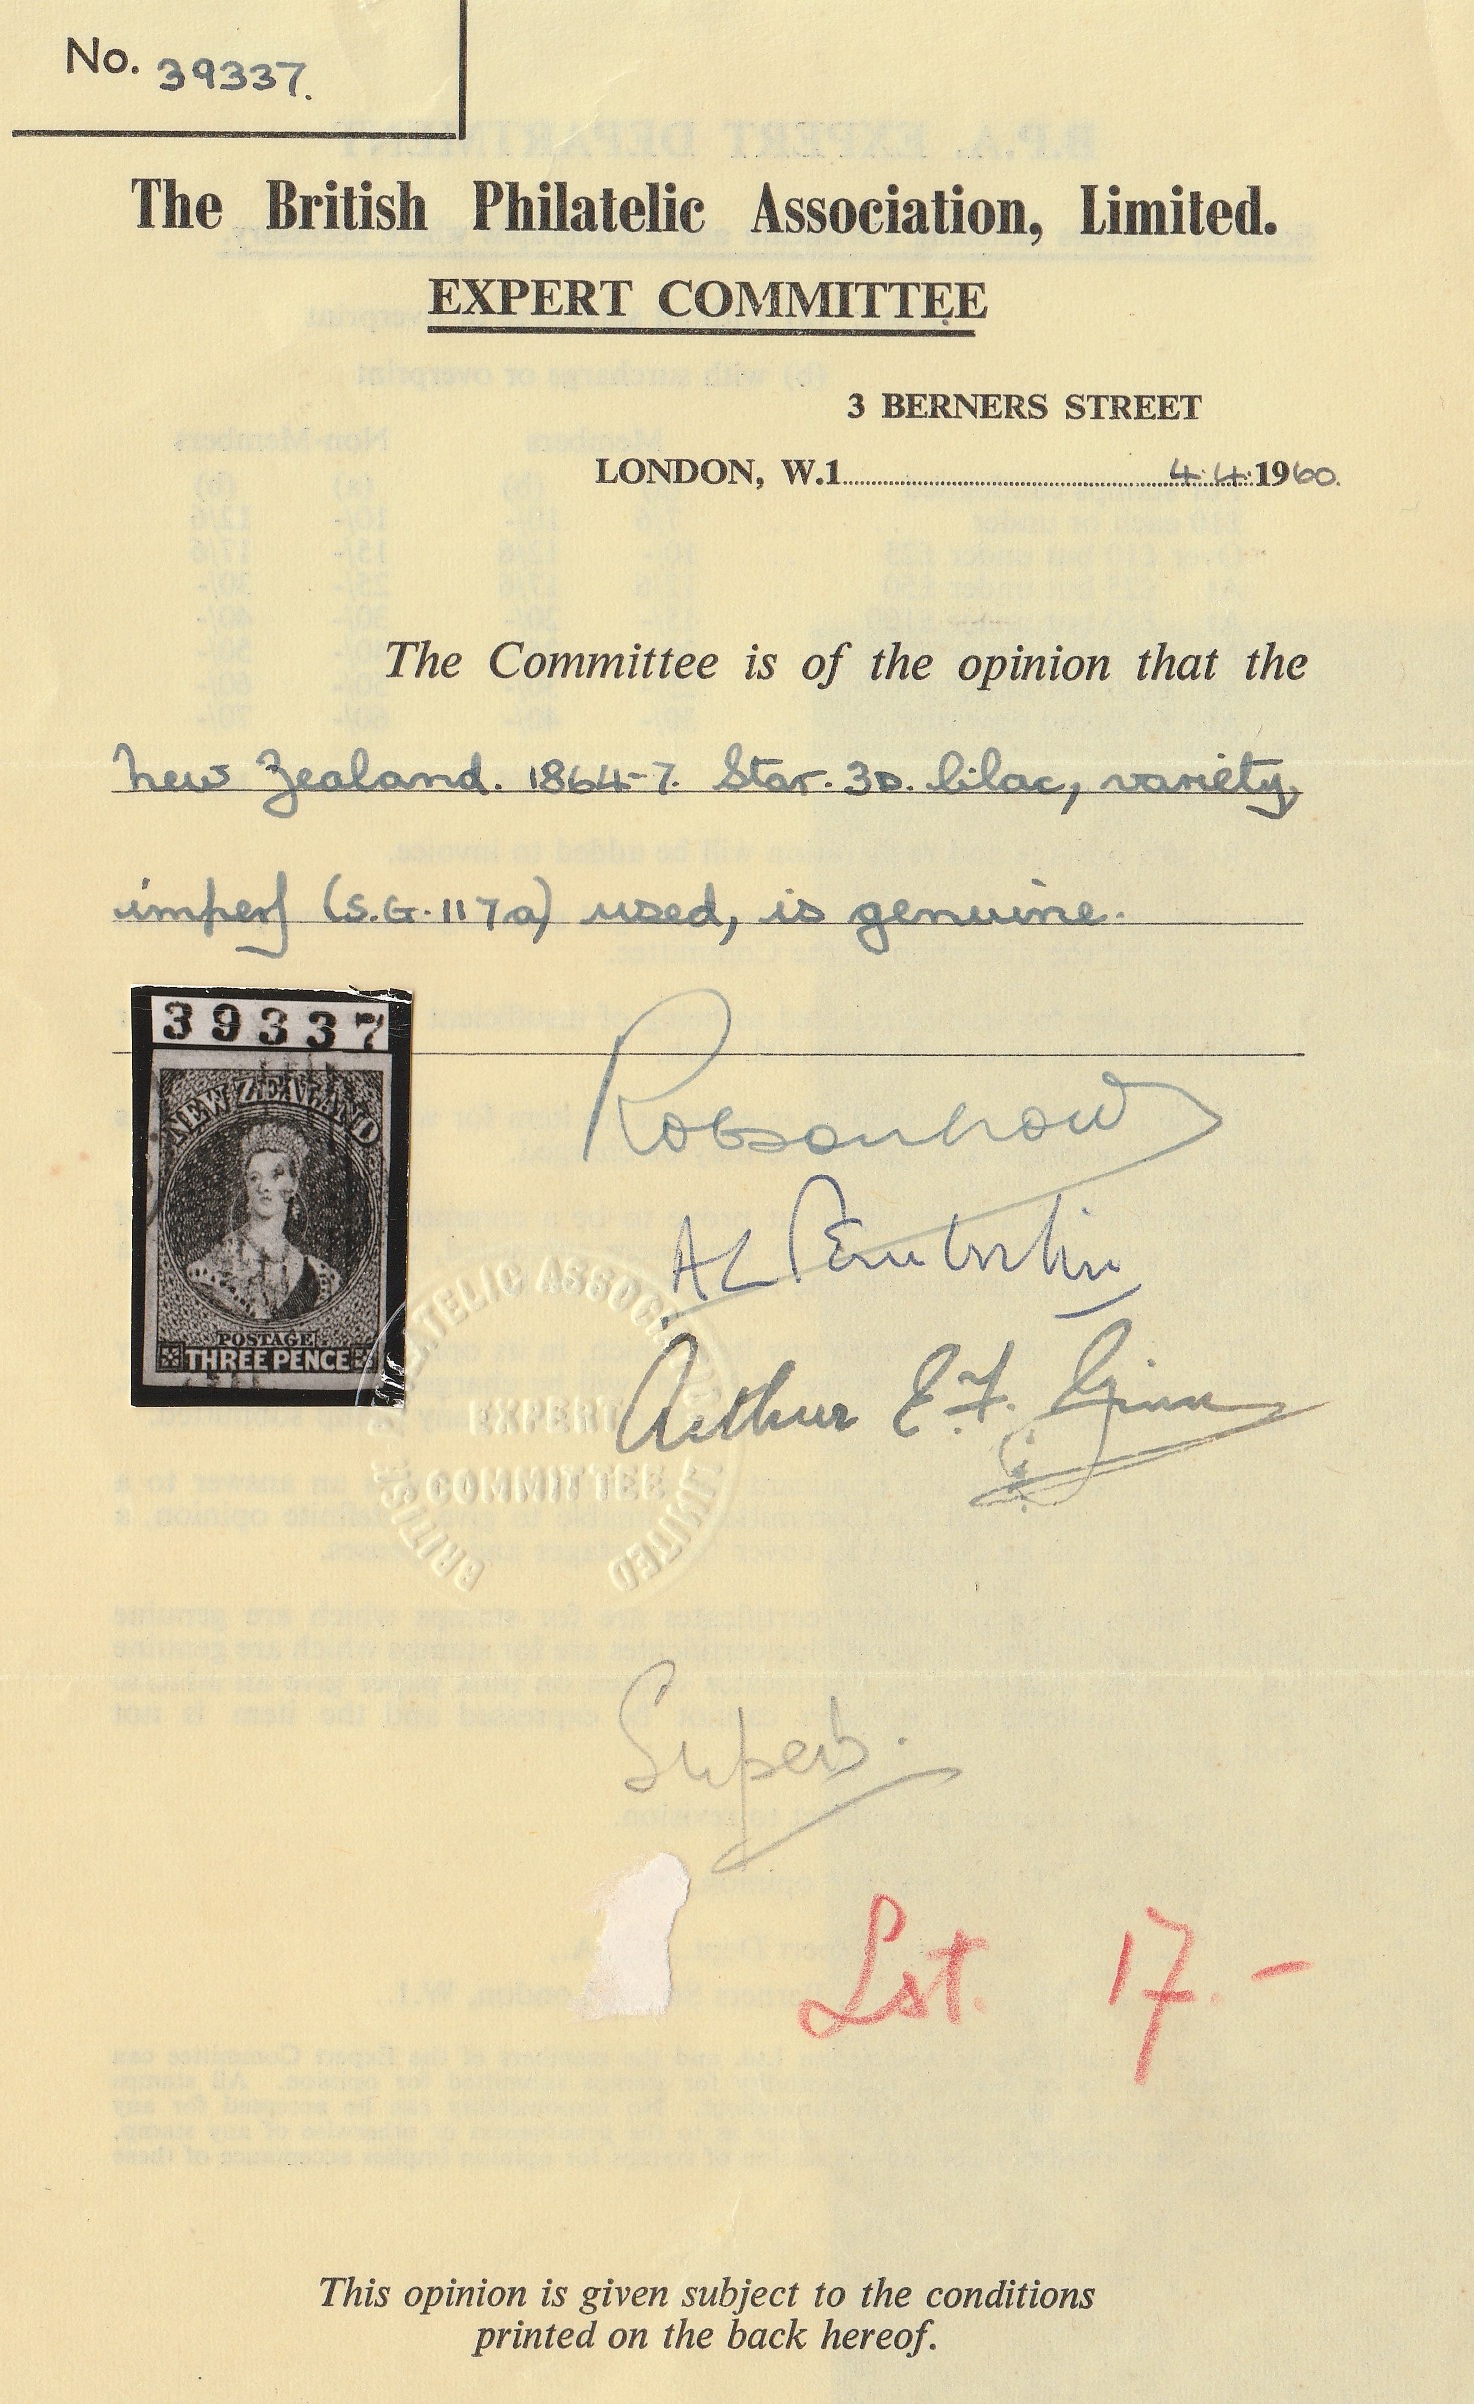 No. 39337.
The British Philatelic Association, Limited.
EXPERT COMMITTEE
3 BERNERS STREET
LONDON, W.1 4.4.1960.
The Committee is of the opinion that the
New Zealand. 1864-7. Star. 3D. lilac, variety,
imperf (S.G. 117a) used, is genuine.
39337
NEW ZEALAND
POSTAGE
THREE PENCE
Robsonlow
Arthur E.F. Ginn
BRITISH PHILATELIC ASSOCIATION LIMITED
EXPERT
COMMITTEE
Superb.
Lot. 17.-
This opinion is given subject to the conditions
printed on the back hereof.